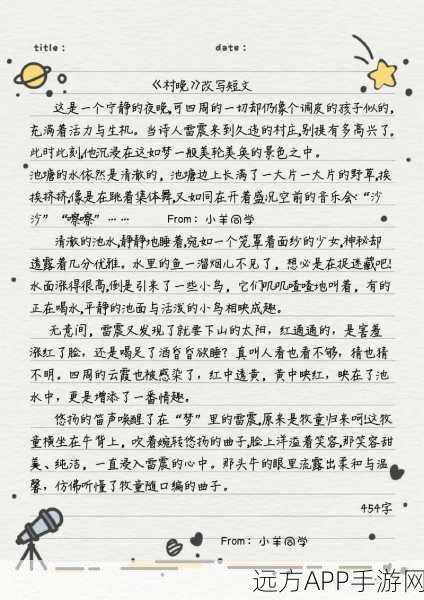 title：
date：
《村晚》改写短文
这是一个宁静的夜晚,可四周的一切却仍像个调皮的孩子似的,
充满着活力与生机。当诗人雷震来到久违的村庄,别提有多高兴了,
此时此刻,他沉浸在这如梦一般美轮美奂的景色之中。
池塘的水依然是清澈的，池塘边上长满了一大片一大片的野草,挨
挨挤挤,像是在跳着集体舞,又如同在开着盛况空前的音乐会:“沙
沙”“嚓嚓”……
From：小羊同学
清澈的池水,静静地睡着,宛如一个笼罩着面纱的少女,神秘却
透露着几分优雅。水里的鱼一溜烟儿不见了，想必是在捉迷藏吧!
水面涨得很高,倒是引来了一些小鸟，它们叽叽喳喳地叫着，有的
正在喝水,平静的池面与活泼的小鸟相映成趣。
无意间，雷震又发现了就要下山的太阳，红通通的，是害羞
涨红了脸，还是喝足了酒昏昏欲睡？真叫人看也看不够，猜也猜
不明。四周的云霞也被感染了，红中透黄，黄中映红，映在了池
水中，更是增添了一番情趣。
悠扬的笛声唤醒了在“梦”里的雷震,原来是牧童归来呵!这牧
童横坐在牛背上，吹着婉转悠扬的曲子,脸上洋溢着笑容,那笑容甜
美、纯洁，一直浸入雷震的心中。那头牛的眼里流露出柔和与温
馨，仿佛听懂了牧童随口编的曲子。
454字
From：小羊同学
远方APP手游网